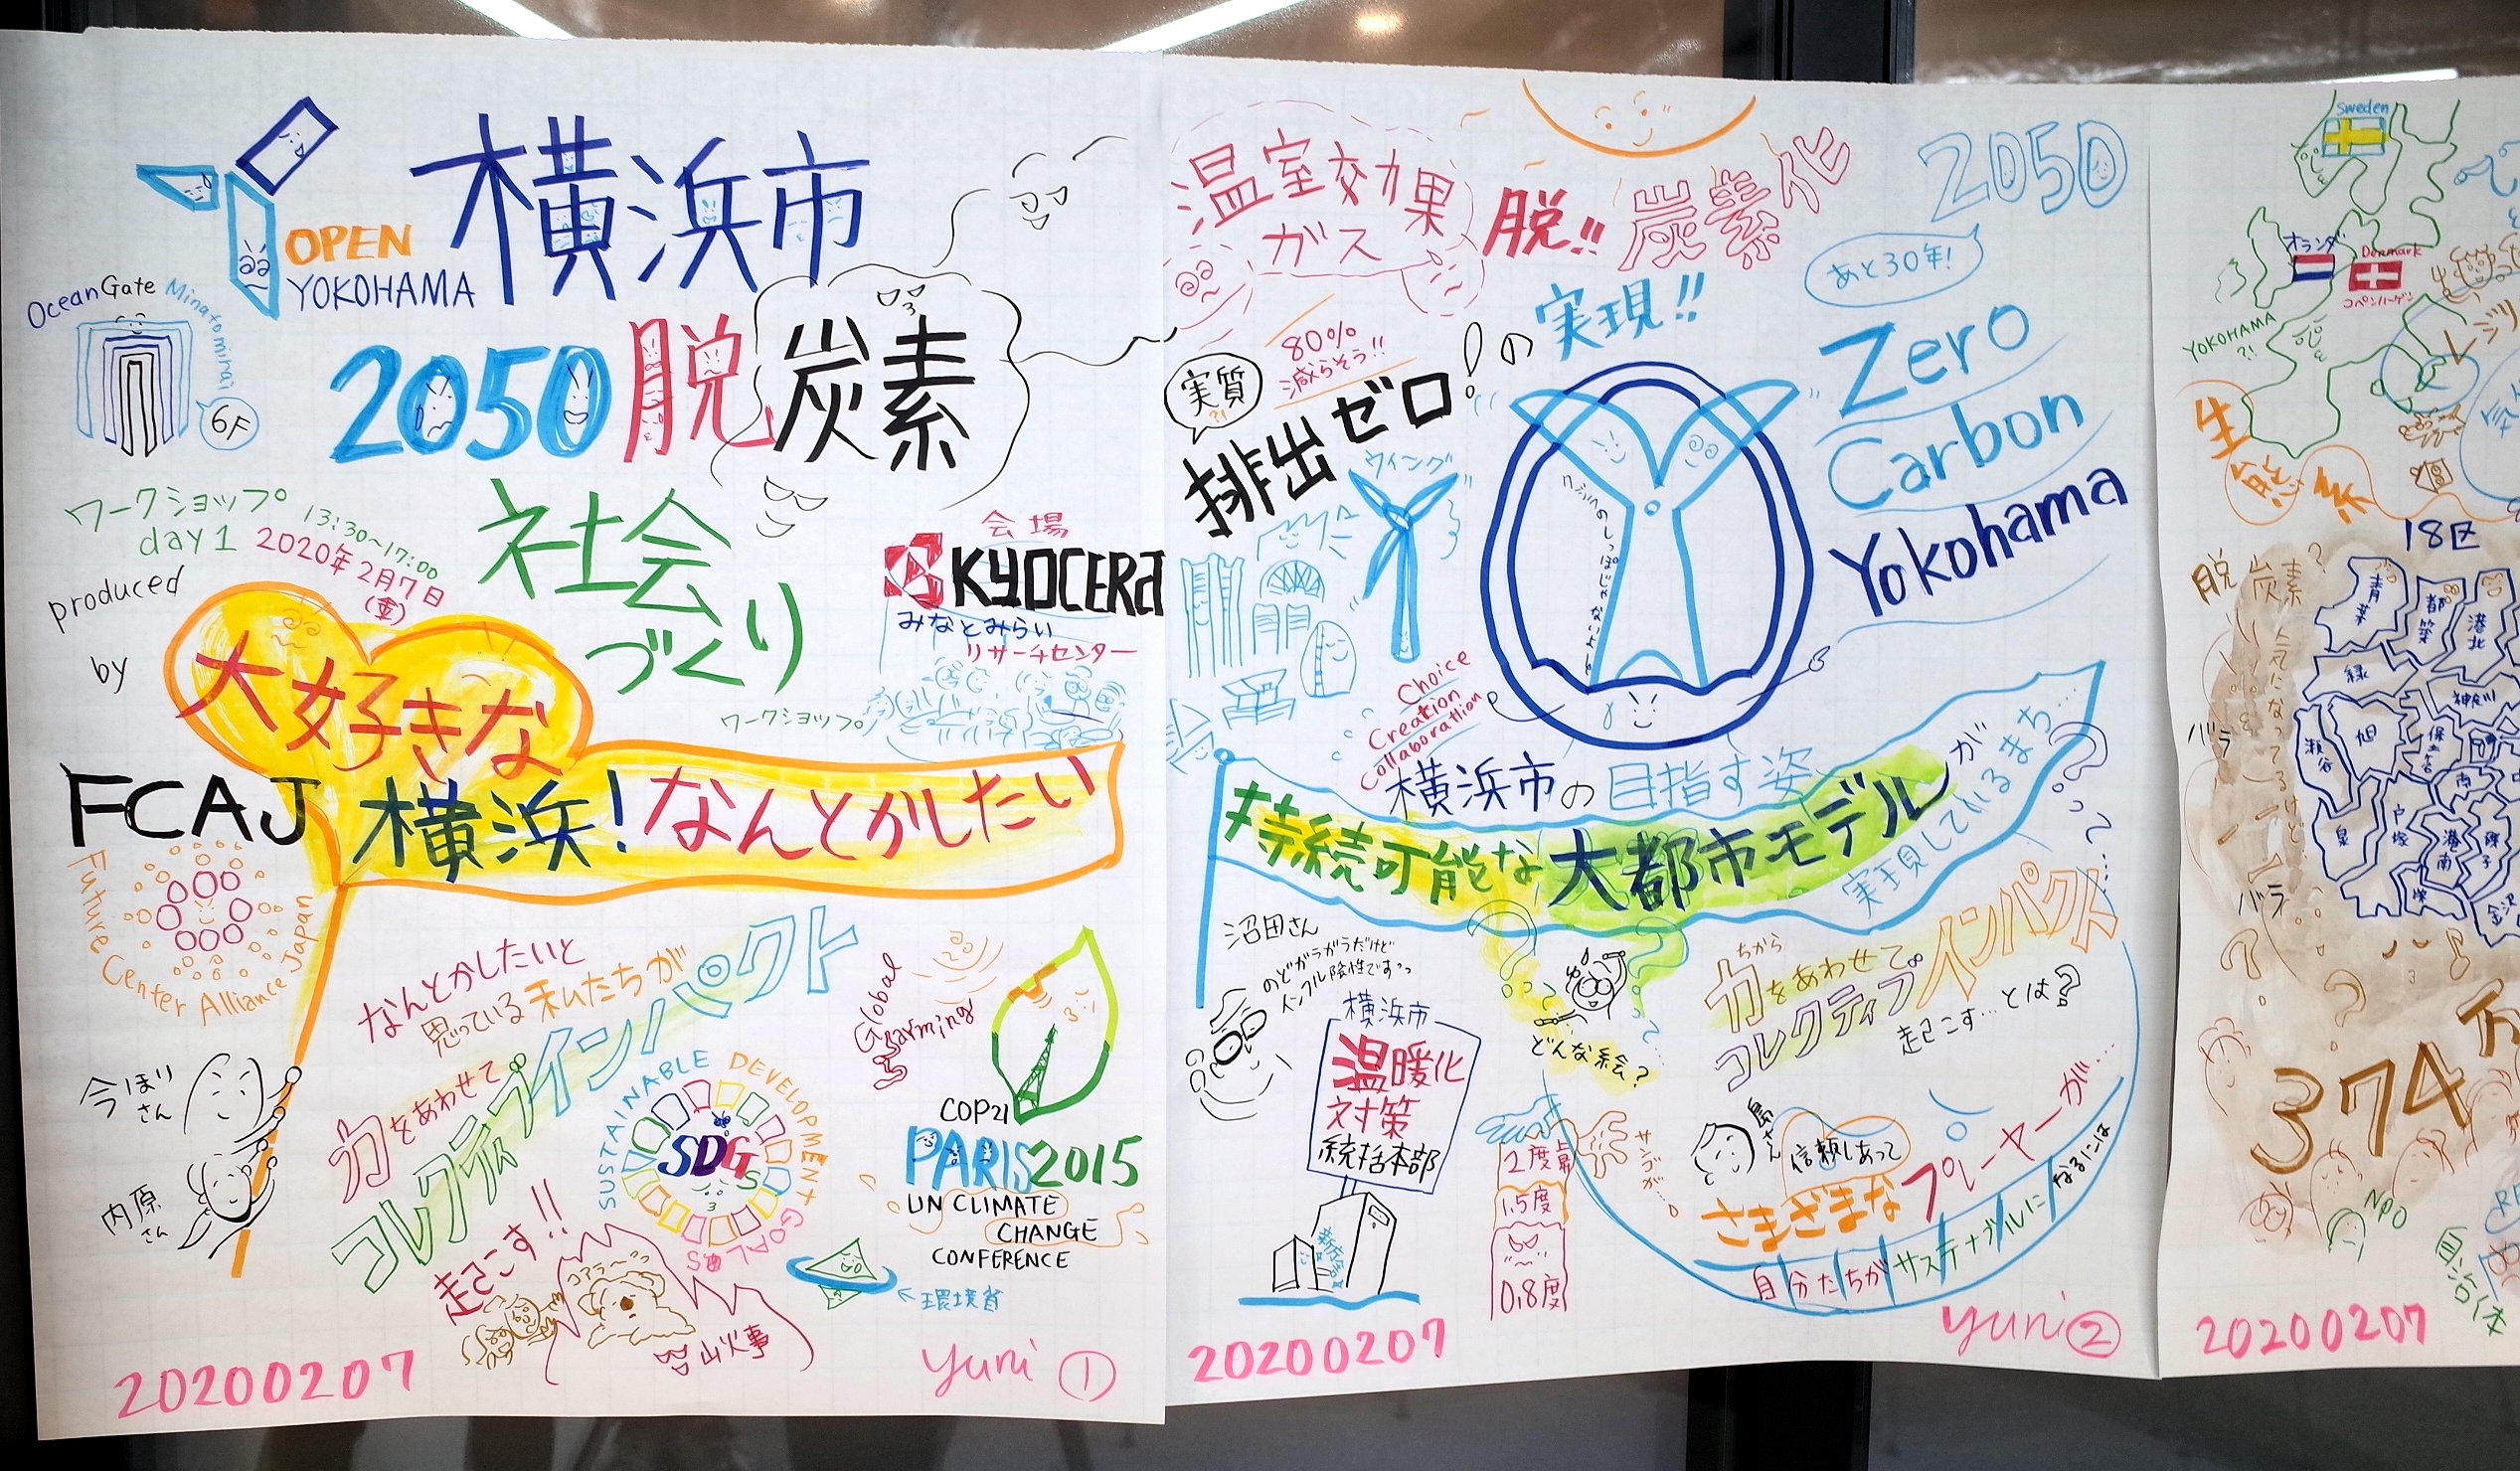 OPEN
YOKOHAMA
横浜市
OceanGate Minatomirai
6F
2050 脱 炭素
ワークショップ 13:30~17:00
day1 2020年2月7日
(金)
社会
づくり
会場
KYOCERA
みなとみらい
リサーチセンター
ワークショップ
produced
by
FCAJ
Future Center Alliance Japan
大好きな
横浜! なんとかしたい
なんとかしたいと
思っている私たちが
力をあわせて
コレクティブインパクト
起こす!!
今ほり
さん
内原
さん
SUSTAINABLE DEVELOPMENT GOALS
SDGs
Global
warming
COP21
PARIS2015
UN CLIMATE
CHANGE
CONFERENCE
環境省
コアラ~
山火事
20200207
yuni ①
温室効果
ガス
脱!! 炭素化
2050
あと30年!
80%
減らそう!!
実質
?!
排出ゼロ!の実現!!
Zero
Carbon
Yokohama
ウィング
クジラのしっぽじゃないよ
Choice
Creation
Collaboration
横浜市の目指す姿
持続可能な大都市モデルが
実現しているまち…
沼田さん
のどがらがらだけど
インフル陰性です
横浜市
温暖化
対策
統括本部
新市庁舎
どんな絵?
ちから
力をあわせて
コレクティブインパクト
起こす…とは?
2度昇
1.5度
0.8度
サンゴが…
島さん
信頼しあって
さまざまなプレーヤーが…
自分たちがサステナブルになるには
20200207
yuni ②
Sweden
オランダ
Denmark
コペンハーゲン
YOKOHAMA
?!
生態系
18区
脱炭素?
気になってるけど…
バラ
バラ
青葉
都筑
港北
緑
神奈川
瀬谷
旭
保土ヶ谷
西
南
泉
戸塚
港南
磯子
栄
金沢
374万
NPO
自治体
20200207